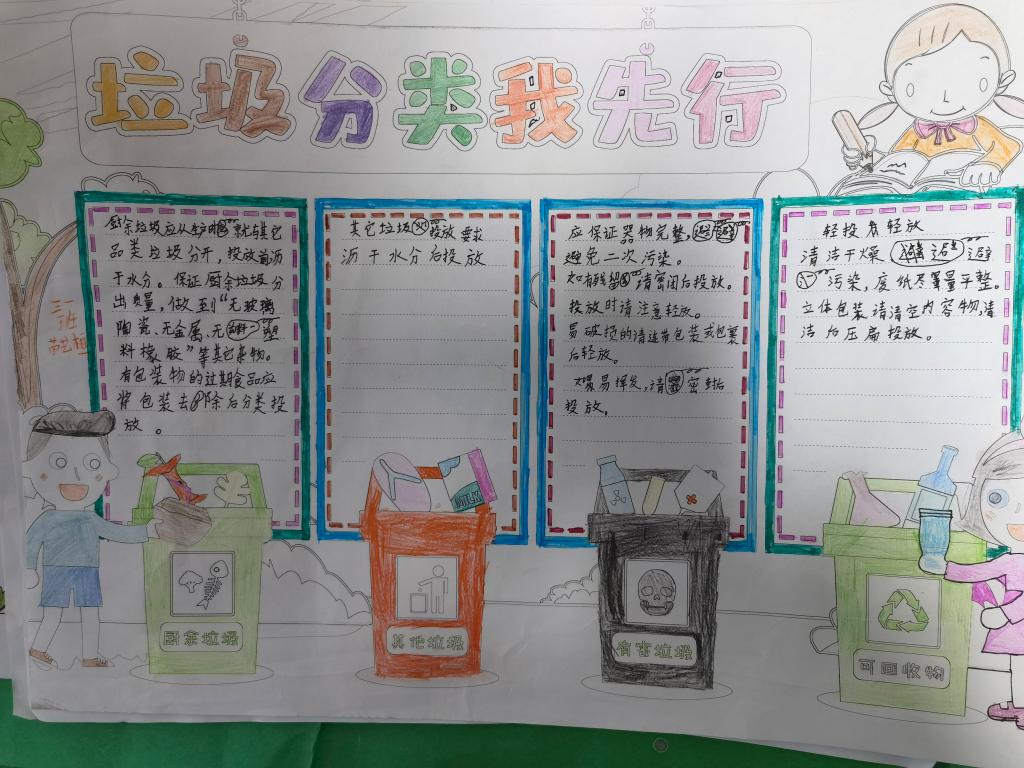 垃圾分类我先行
厨余垃圾应从产生时就与其它
品类垃圾分开，投放前沥
干水分。保证厨余垃圾分
出质量，做到“无玻璃
陶瓷，无金属，无塑
料橡胶”等其它杂物。
有包装物的过期食品应
将包装去除后分类投
放。
其它垃圾投放要求
沥干水分后投放
应保证器物完整，
避免二次污染。
如有残留请密闭后投放。
投放时请注意轻放。
易破损的请连带包装或包裹
后轻放。
如易挥发，请密封后
投放。
轻投轻放
清洁干燥，避
污染，废纸尽量平整。
立体包装请清空内容物，清
洁后压扁投放。
三一
班
MILK
厨余垃圾
其他垃圾
有害垃圾
可回收物